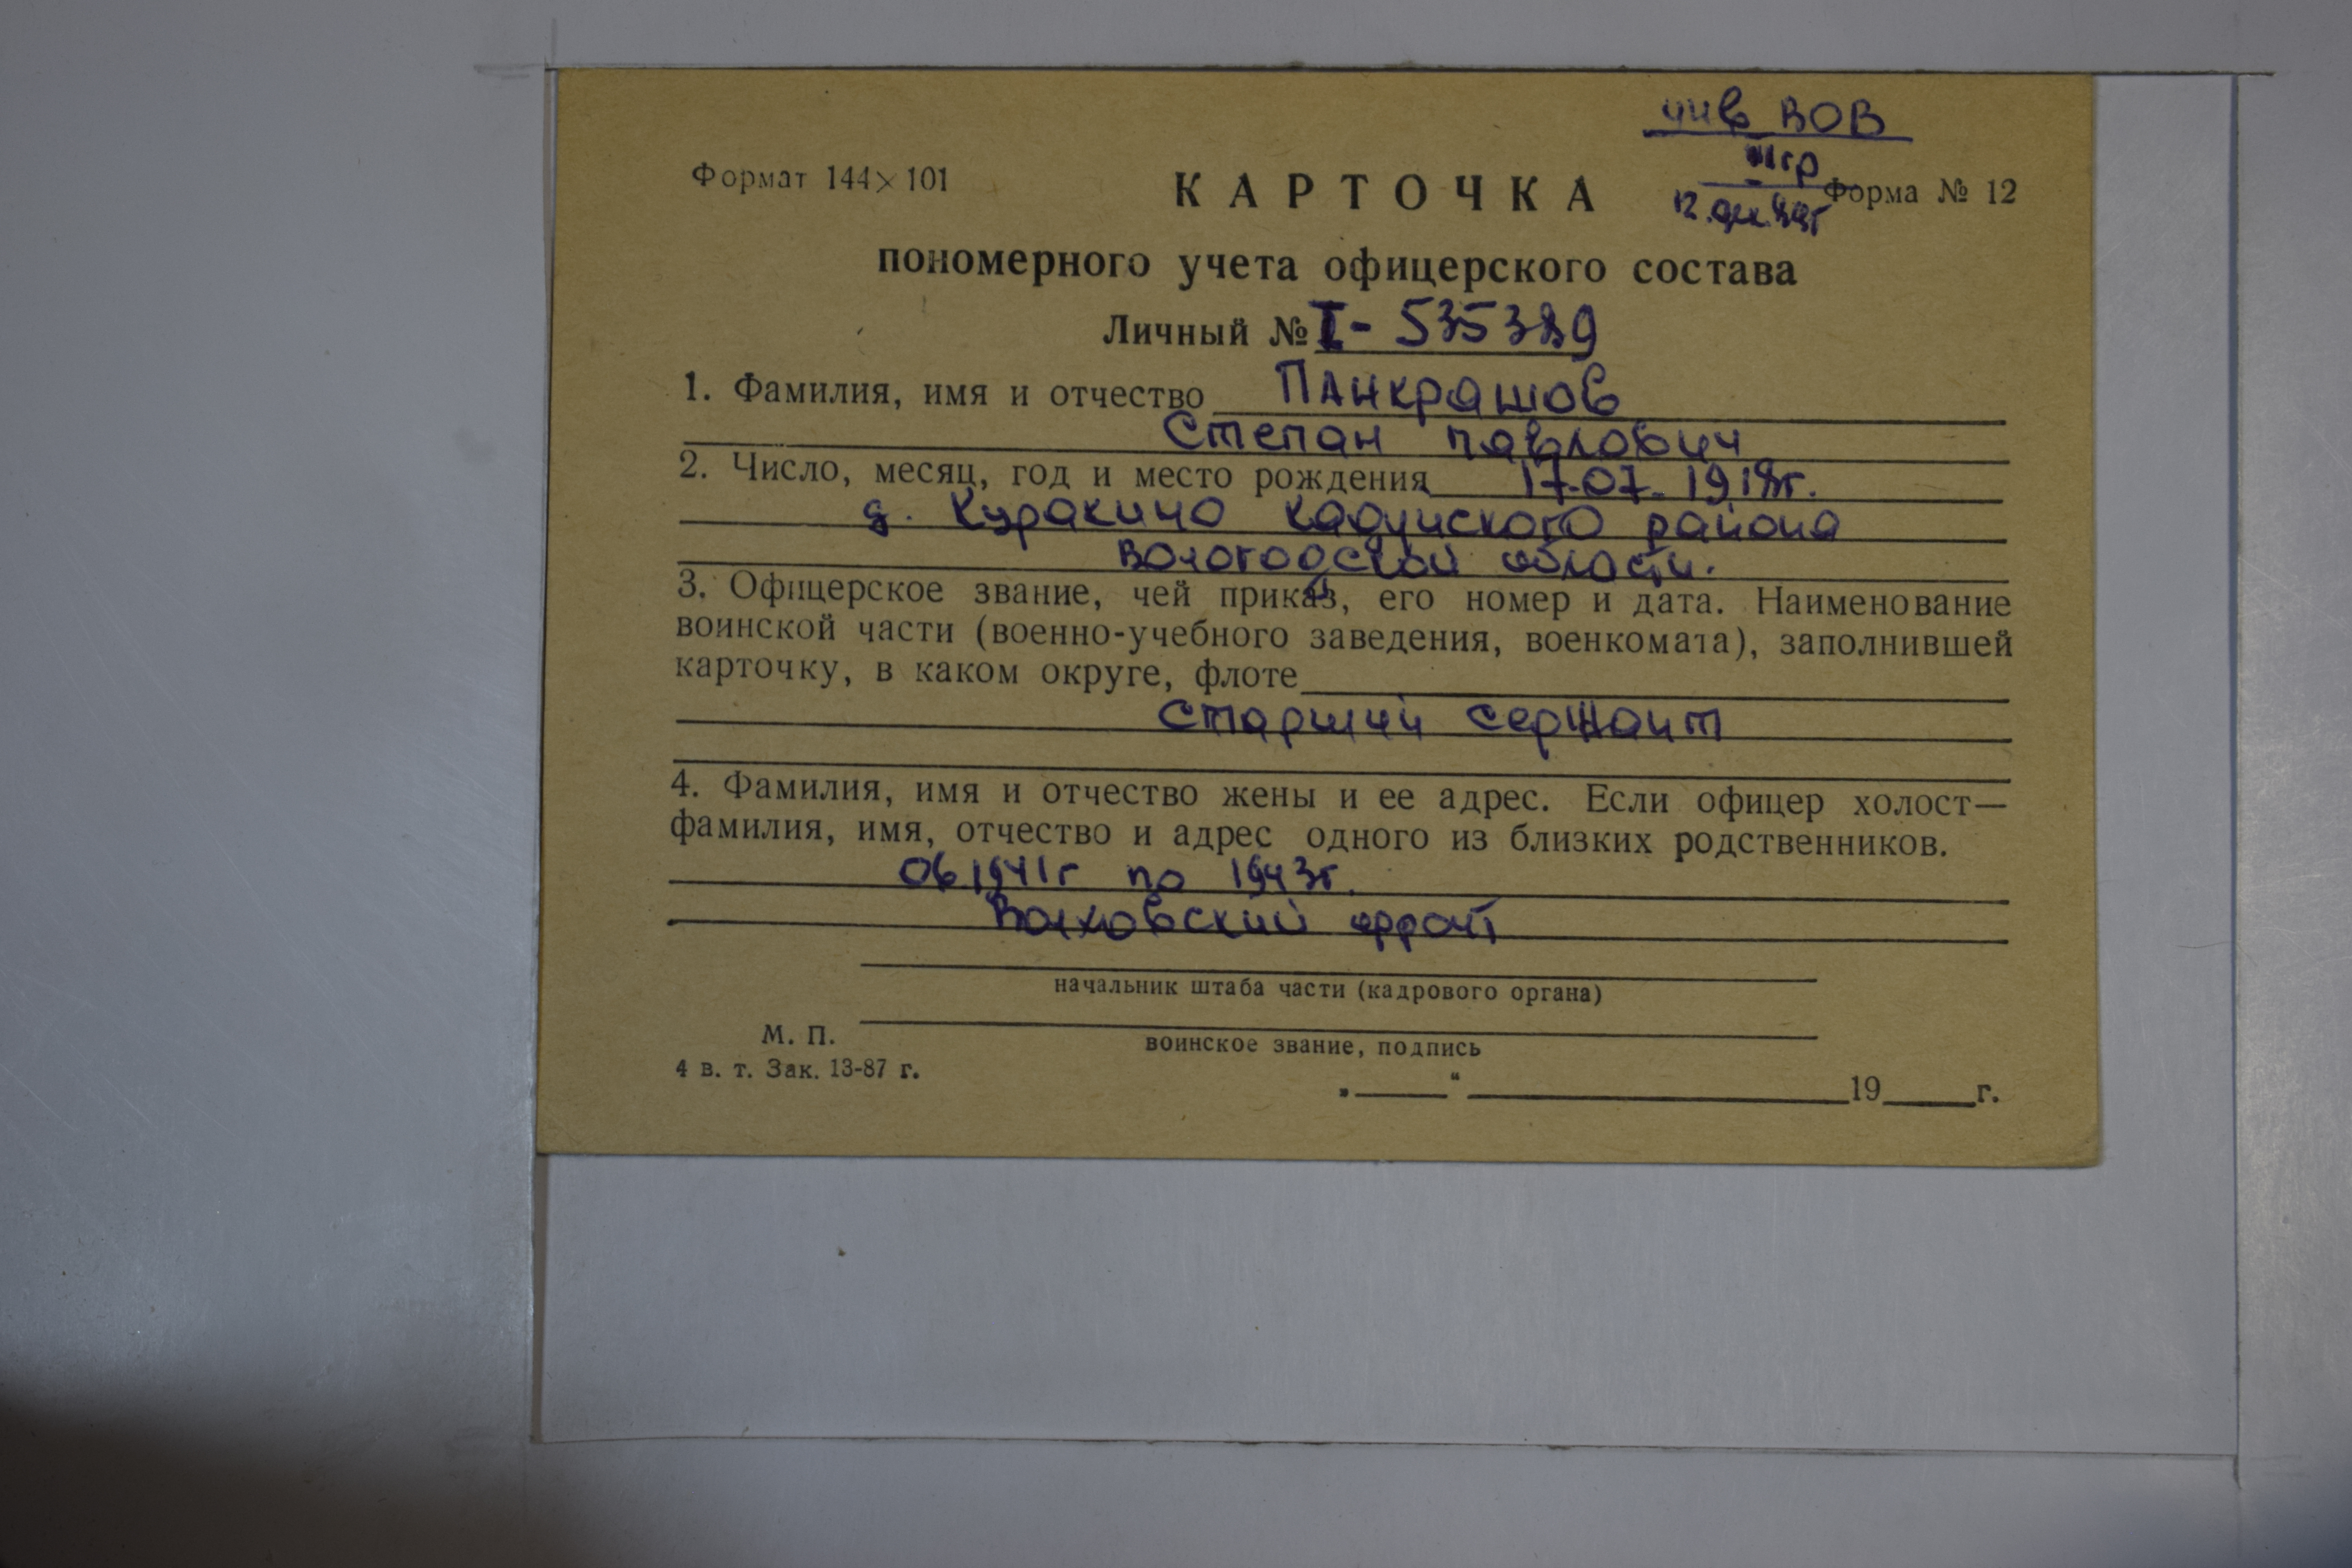 инв ВОВ
III гр
Формат 144×101
КАРТОЧКА
Форма № 12
12. 
пономерного учета офицерского состава
Личный № I - 535389
1. Фамилия, имя и отчество Панкрашов
Степан Павлович
2. Число, месяц, год и место рождения 17-07-1918г.
д. Куракино Кадуйского района
Вологодской области.
3. Офицерское звание, чей приказ, его номер и дата. Наименование
воинской части (военно-учебного заведения, военкомата), заполнившей
карточку, в каком округе, флоте
Старший сержант
4. Фамилия, имя и отчество жены и ее адрес. Если офицер холост—
фамилия, имя, отчество и адрес одного из близких родственников.
06.1941г по 1943г.
Волховский фронт
начальник штаба части (кадрового органа)
М. П.
воинское звание, подпись
4 в. т. Зак. 13-87 г.
„ “ 19 г.